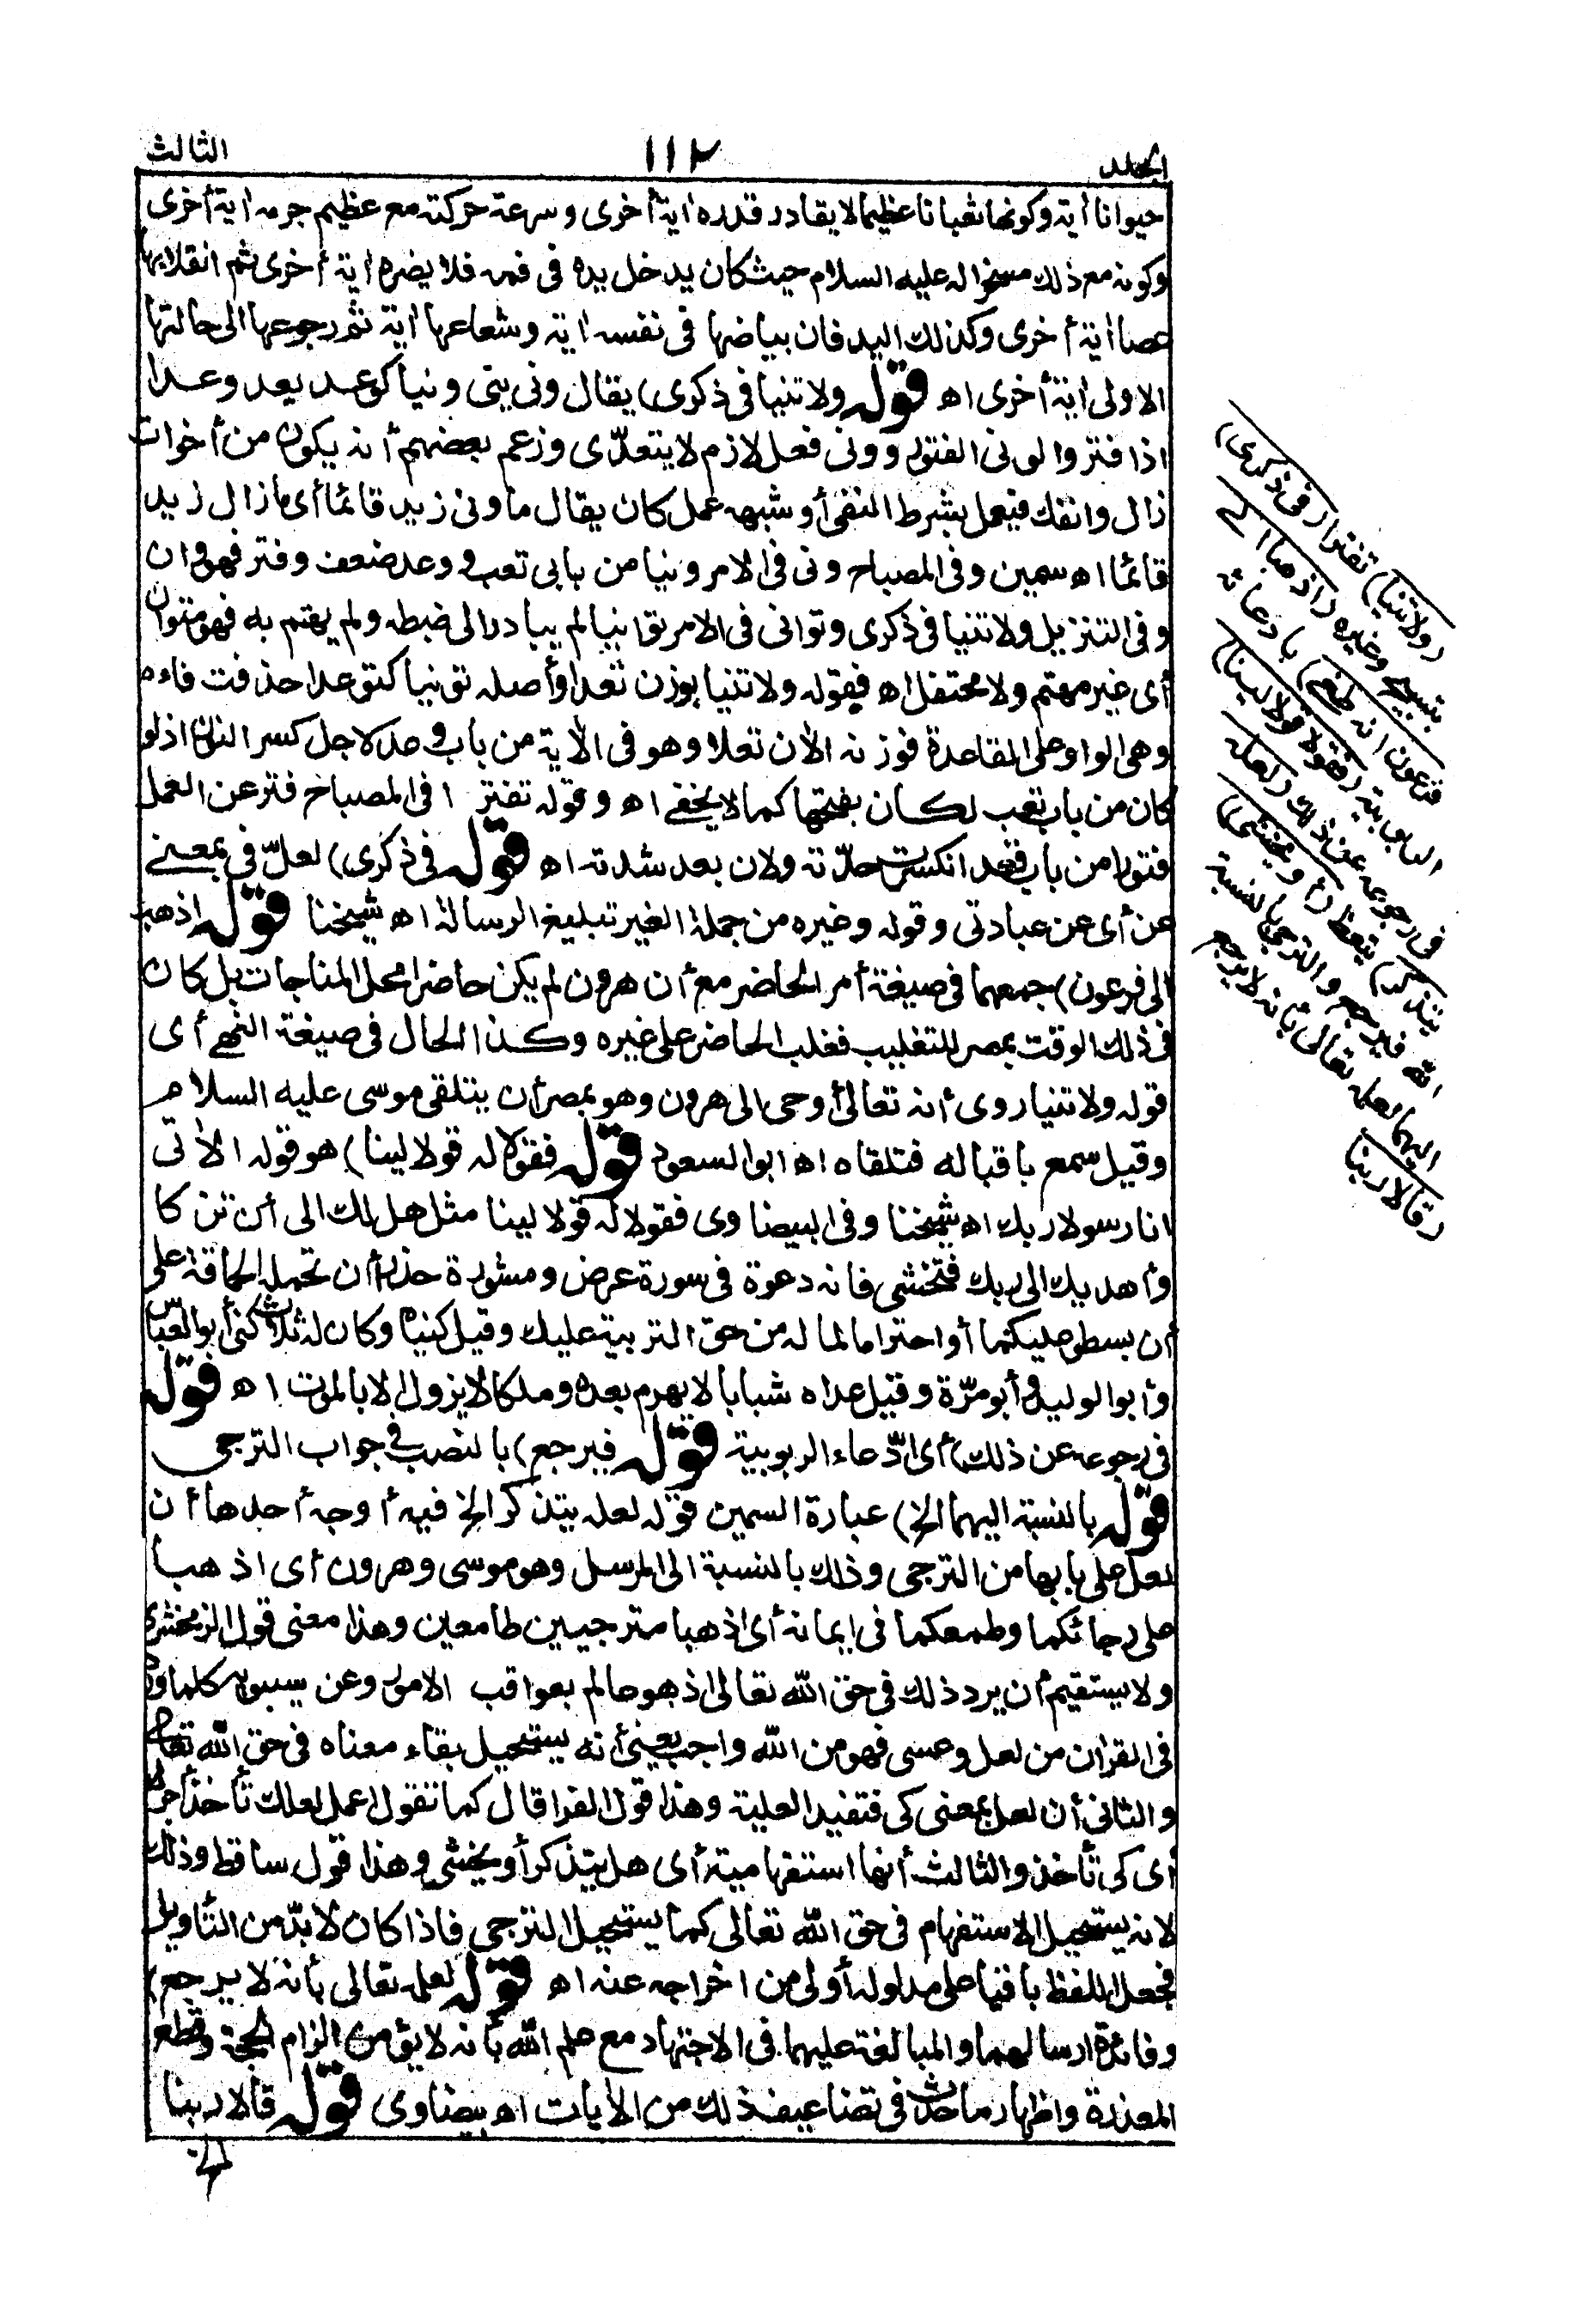 المجلد ١١٢ الثالث
حيوانا آية وكونها ثعبانا عظيما لا يقادر قدره آية أخرى وسرعة حركته مع عظيم جرمه آية أخرى
وكونه مع ذلك مسخرا له عليه السلام حيث كان يدخل يده فى فمه فلا يضره آية أخرى ثم انقلابها
عصا آية أخرى وكذلك اليد فان بياضها فى نفسه آية وشعاعها آية ثم رجوعها الى حالتها
الاولى آية أخرى اه قوله ولا تنيا فى ذكرى) يقال ونى ينى ونيا كوعد يعد وعدا
اذا فتر والونى الفتور وونى فعل لازم لا يتعدّى وزعم بعضهم أنه يكون من أخوات
زال وانفك فيعمل بشرط النفى أو شبهه عمل كان يقال ما ونى زيد قائما أى ما زال زيد
قائما اه سمين وفى المصباح ونى فى الامر ونيا من بابى تعب ووعد ضعف وفتر فهو وان
وفى التنزيل ولا تنيا فى ذكرى وتوانى فى الامر توانيا لم يبادر الى ضبطه ولم يهتم به فهو متوان
أى غير مهتم ولا محتفل اه فقوله ولا تنيا بوزن تعدا وأصله تونيا كتوعدا حذفت فاءه
وهى الواو على القاعدة فوزنه الآن تعلا وهو فى الآية من باب وعد لاجل كسر النون اذ لو
كان من باب تعب لكان بفتحها كما لا يخفى اه وقوله تفترا فى المصباح فتر عن العمل
فتورا من باب قعد انكسرت حدّته ولان بعد شدته اه قوله فى ذكرى) لعلّ فى بمعنى
عن أى عن عبادتى وقوله وغيره من جملة الغير تبليغ الرسالة اه شيخنا قوله اذهبا
الى فرعون) جمعهما فى صيغة أمر الحاضر مع أن هرون لم يكن حاضرا محل المناجات بل كان
فى ذلك الوقت بمصر للتغليب فغلب الحاضر على غيره وكذا الحال فى صيغة النهى أى
قوله ولا تنيا روى أنه تعالى أوحى الى هرون وهو بمصر أن يتلقى موسى عليه السلام
وقيل سمع باقباله فتلقاه اه ابو السعود قوله فقولا له قولا لينا) هو قوله الآتى
انا رسولا ربك اه شيخنا وفى البيضاوى فقولا له قولا لينا مثل هل لك الى أن تزكا
وأهديك الى ربك فتخشى فانه دعوة فى سورة عرض ومشورة حذرا أن تحمله الحماقة على
أن يسطو عليكما أو احتراما لما له من حق التربية عليك وقيل كنياه وكان له ثلاث كنى أبو العباس
وأبو الوليد وأبو مرّة وقيل عداه شبابا لا يهرم بعده وملكا لا يزول الا بالموت اه قوله
فى رجوعه عن ذلك) أى ادّعاء الربوبية قوله فيرجع) بالنصب فى جواب الترجى
قوله بالنسبة اليهما الخ) عبارة السمين قوله لعله يتذكر الخ فيه أوجه أحدها أن
لعل على بابها من الترجى وذلك بالنسبة الى المرسل وهو موسى وهرون أى اذهبا
على رجائكما وطمعكما فى ايمانه أى اذهبا مترجيين طامعين وهذا معنى قول الزمخشرى
ولا يستقيم أن يرد ذلك فى حق الله تعالى اذ هو عالم بعواقب الامور وعن سيبويه كلما ورد
فى القرآن من لعل وعسى فهو من الله واجب يعنى أنه يستحيل بقاء معناه فى حق الله تعالى
والثانى أن لعل بمعنى كى فتفيد العلية وهذا قول الفرا قال كما تقول اعمل لعلك تأخذ أجرك
أى كى تأخذ والثالث أنها استفهامية أى هل يتذكر أو يخشى وهذا قول ساقط وذلك
لانه يستحيل الاستفهام فى حق الله تعالى كما يستحيل الترجى فاذا كان لا بدّ من التأويل
فجعل اللفظ باقيا على مدلوله أولى من اخراجه عنه اه قوله لعلمه تعالى بأنه لا يرجع)
وفائدة ارسالهما والمبالغة عليهما فى الاجتهاد مع علم الله بأنه لا يؤمن الزام الحجة وقطع
المعذرة واظهار ما حدث فى تضاعيف ذلك من الآيات اه بيضاوى قوله قالا ربنا
(ولا تنيا) تفترا (فى ذكرى)
بتسبيح وغيره (اذهبا الى
فرعون انه طغى) بادعائه
الربوبية (فقولا له قولا لينا)
فى رجوعه عن ذلك (لعله
يتذكر) يتعظ (أو يخشى)
الله فيرجع والترجى بالنسبة
اليهما لعلمه تعالى بأنه لا يرجع
(قالا ربنا